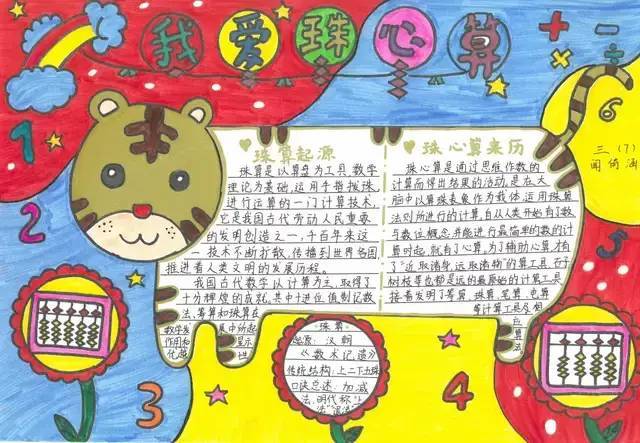 我爱珠心算
三（7）
1
2
3
4
5
6
珠算起源
珠算是以算盘为工具，数学
理论为基础，运用手指拨珠
进行运算的一门计算技术，
它是我国古代劳动人民重要
的发明创造之一，千百年来这
一技术不断扩散，传播到世界各国
推进着人类文明的发展历程。
我国古代数学以计算为主，取得了
十分辉煌的成就。其中十进位值制记数
法、筹算和珠算在
数学发展中所起
作用和显示
优 性
珠心算来历
珠心算是通过思维作数的
计算而得出结果的活动，是在大
脑中以算珠表象作为载体，运用珠算
法则所进行的计算。自从人类开始有了数
与数位概念，并能进行最简单的数的计
算时起，就有了心算，为了辅助心算，才有
了“近取诸身，远取诸物”的算工具，石子
树枝等也都是远的最原始的计算工具
接着发明了筹算、珠算、笔算、电算
等计算工具及相
应算法。
珠算
起源：汉朝
《数术记遗》
传统结构：上二下五珠
口诀总述：加减
法，明代称“上
法”“退法”